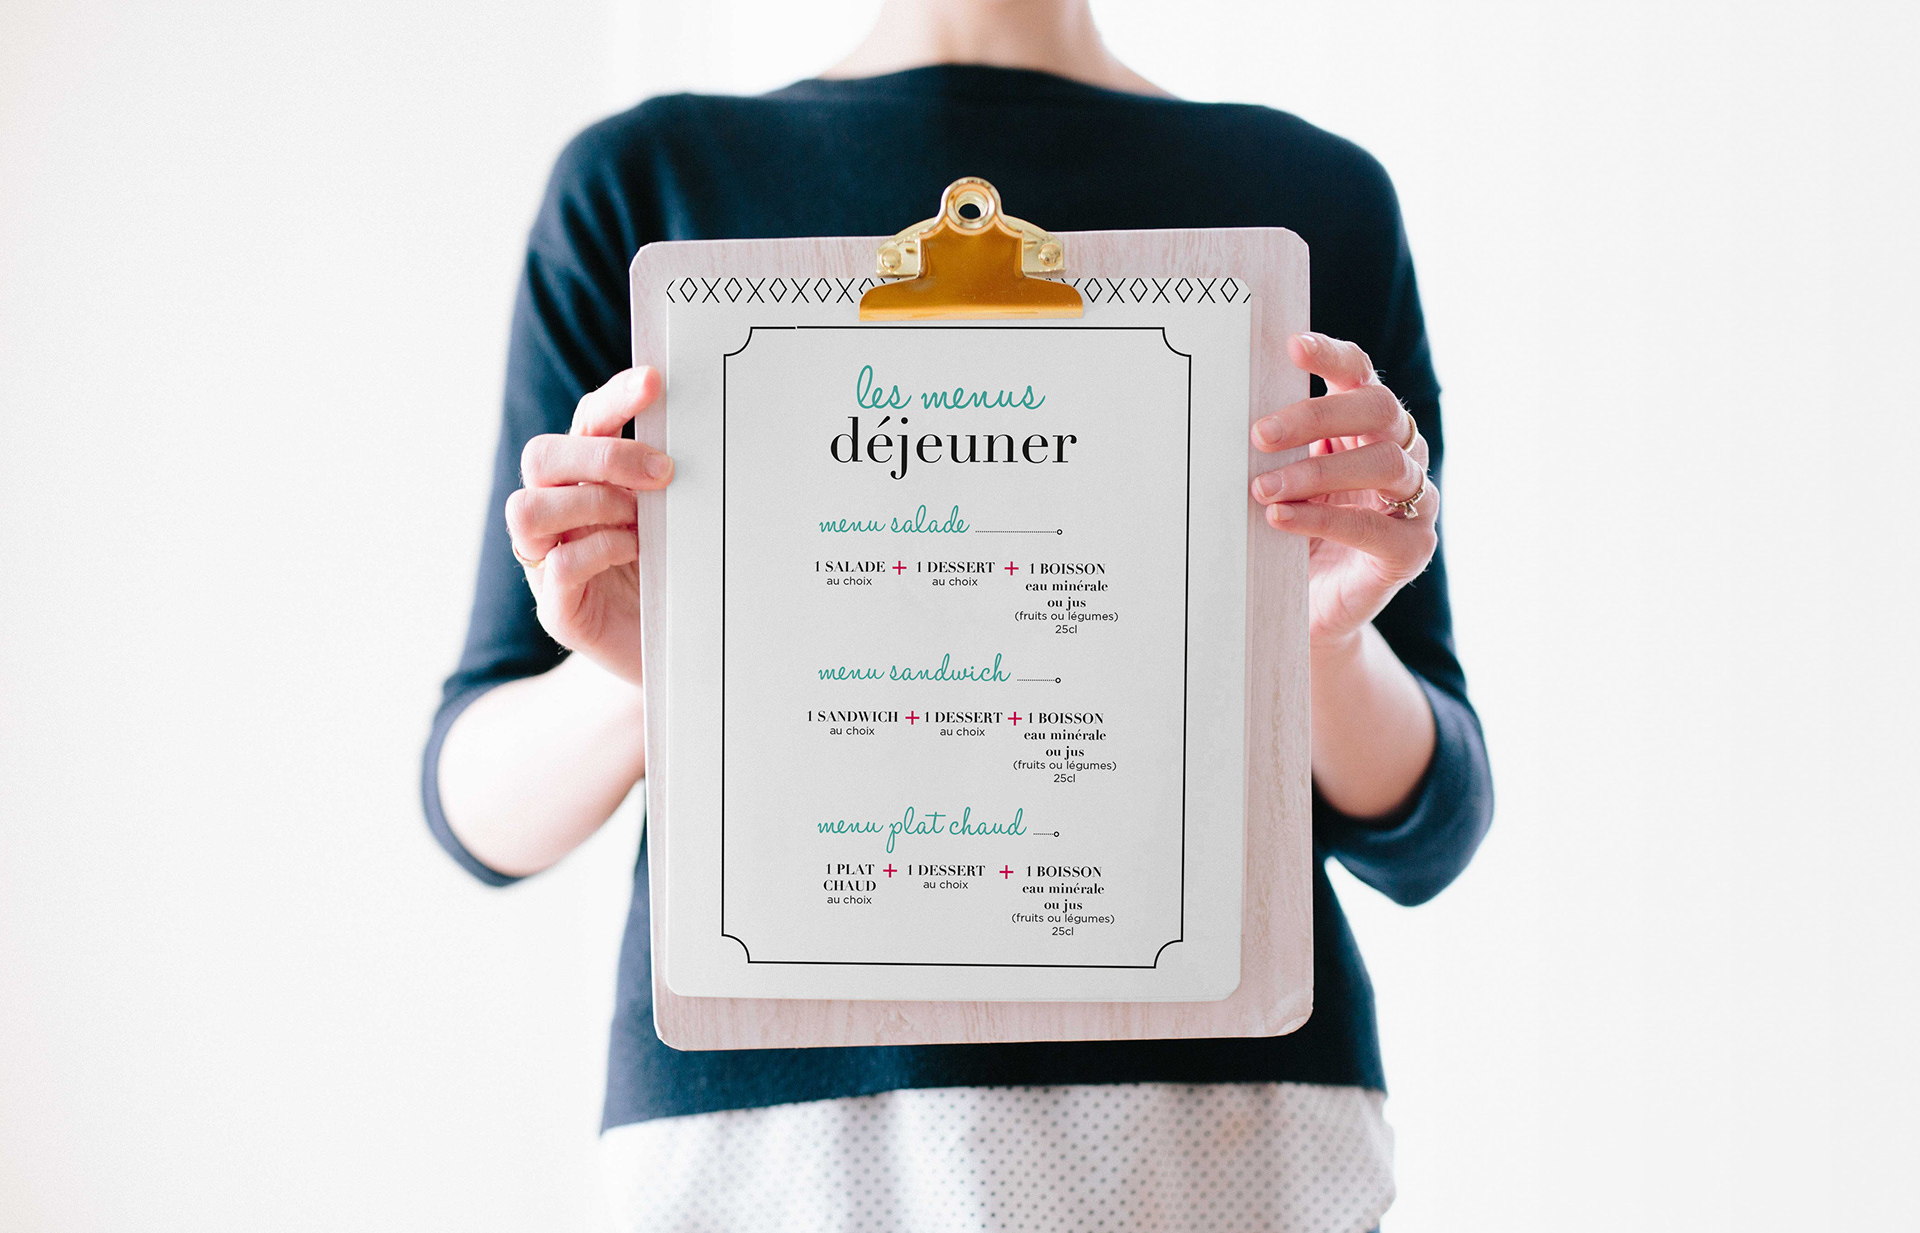 les menus
déjeuner
menu salade
1 SALADE + 1 DESSERT + 1 BOISSON
au choix au choix eau minérale
ou jus
(fruits ou légumes)
25cl
menu sandwich
1 SANDWICH + 1 DESSERT + 1 BOISSON
au choix au choix eau minérale
ou jus
(fruits ou légumes)
25cl
menu plat chaud
1 PLAT + 1 DESSERT + 1 BOISSON
CHAUD au choix eau minérale
au choix ou jus
(fruits ou légumes)
25cl